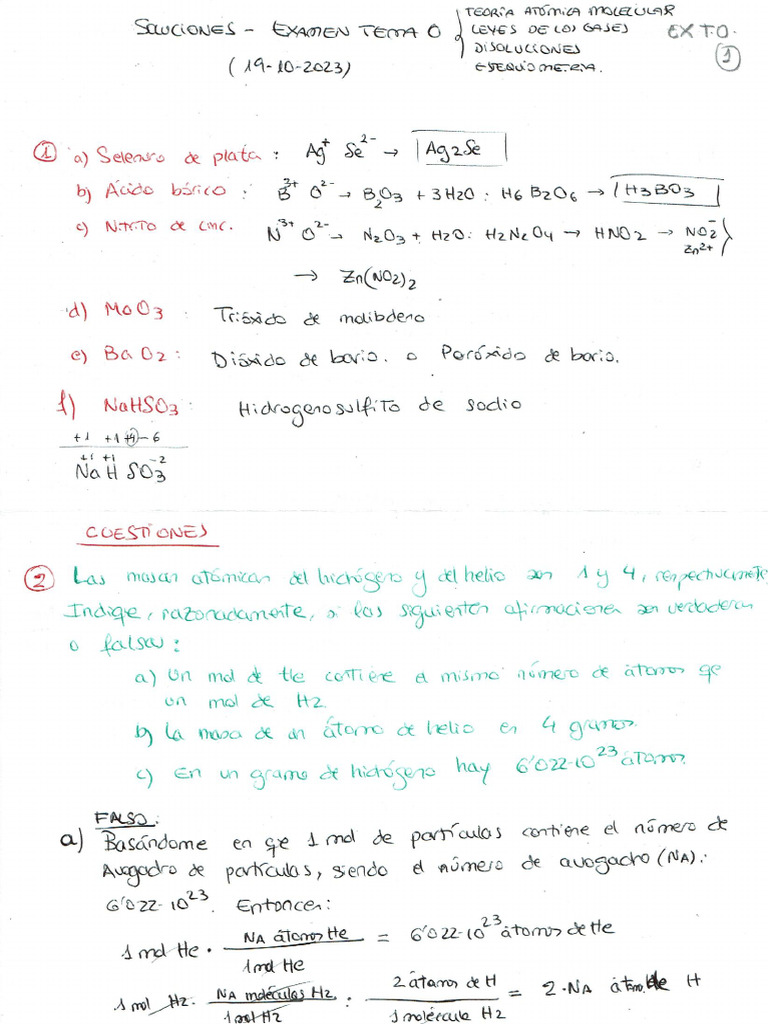 SOLUCIONES - EXAMEN TEMA 0 { TEORÍA ATÓMICA MOLECULAR
LEYES DE LOS GASES
DISOLUCIONES
ESTEQUIOMETRIA.
EX T.0.
1
(19-10-2023)
1 a) Selenuro de plata : Ag⁺ Se²⁻ → Ag2Se
b) Ácido bórico : B³⁺ O²⁻ → B2O3 + 3H2O : H6 B2O6 → H3BO3
c) Nitrito de cinc. N³⁺ O²⁻ → N2O3 + H2O : H2N2O4 → HNO2 → NO2⁻ Zn²⁺ }
→ Zn(NO2)2
d) MoO3 : Trióxido de molibdeno
e) BaO2 : Dióxido de bario. o Peróxido de bario.
f) NaHSO3 : Hidrogenosulfito de sodio
+1 +1 +4 -6
+1 +1 -2
Na H SO3
CUESTIONES
2 Las masas atómicas del hidrógeno y del helio son 1 y 4, respectivamente.
Indiqe, razonadamente, si las siguientes afirmaciones son verdaderas
o falsas :
a) Un mol de He contiene el mismo número de átomos qe
un mol de H2
b) La masa de un átomo de helio es 4 gramos.
c) En un gramo de hidrógeno hay 6'022·10²³ átomos.
FALSO:
a) Basándome en qe 1 mol de partículas contiene el número de
Avogadro de partículas, siendo el número de avogadro (NA):
6'022·10²³. Entonces:
1 mol He · NA átomos He / 1 mol He = 6'022·10²³ átomos de He
1 mol H2 · NA moléculas H2 / 1 mol H2 · 2 átomos de H / 1 molécula H2 = 2·NA átom de H